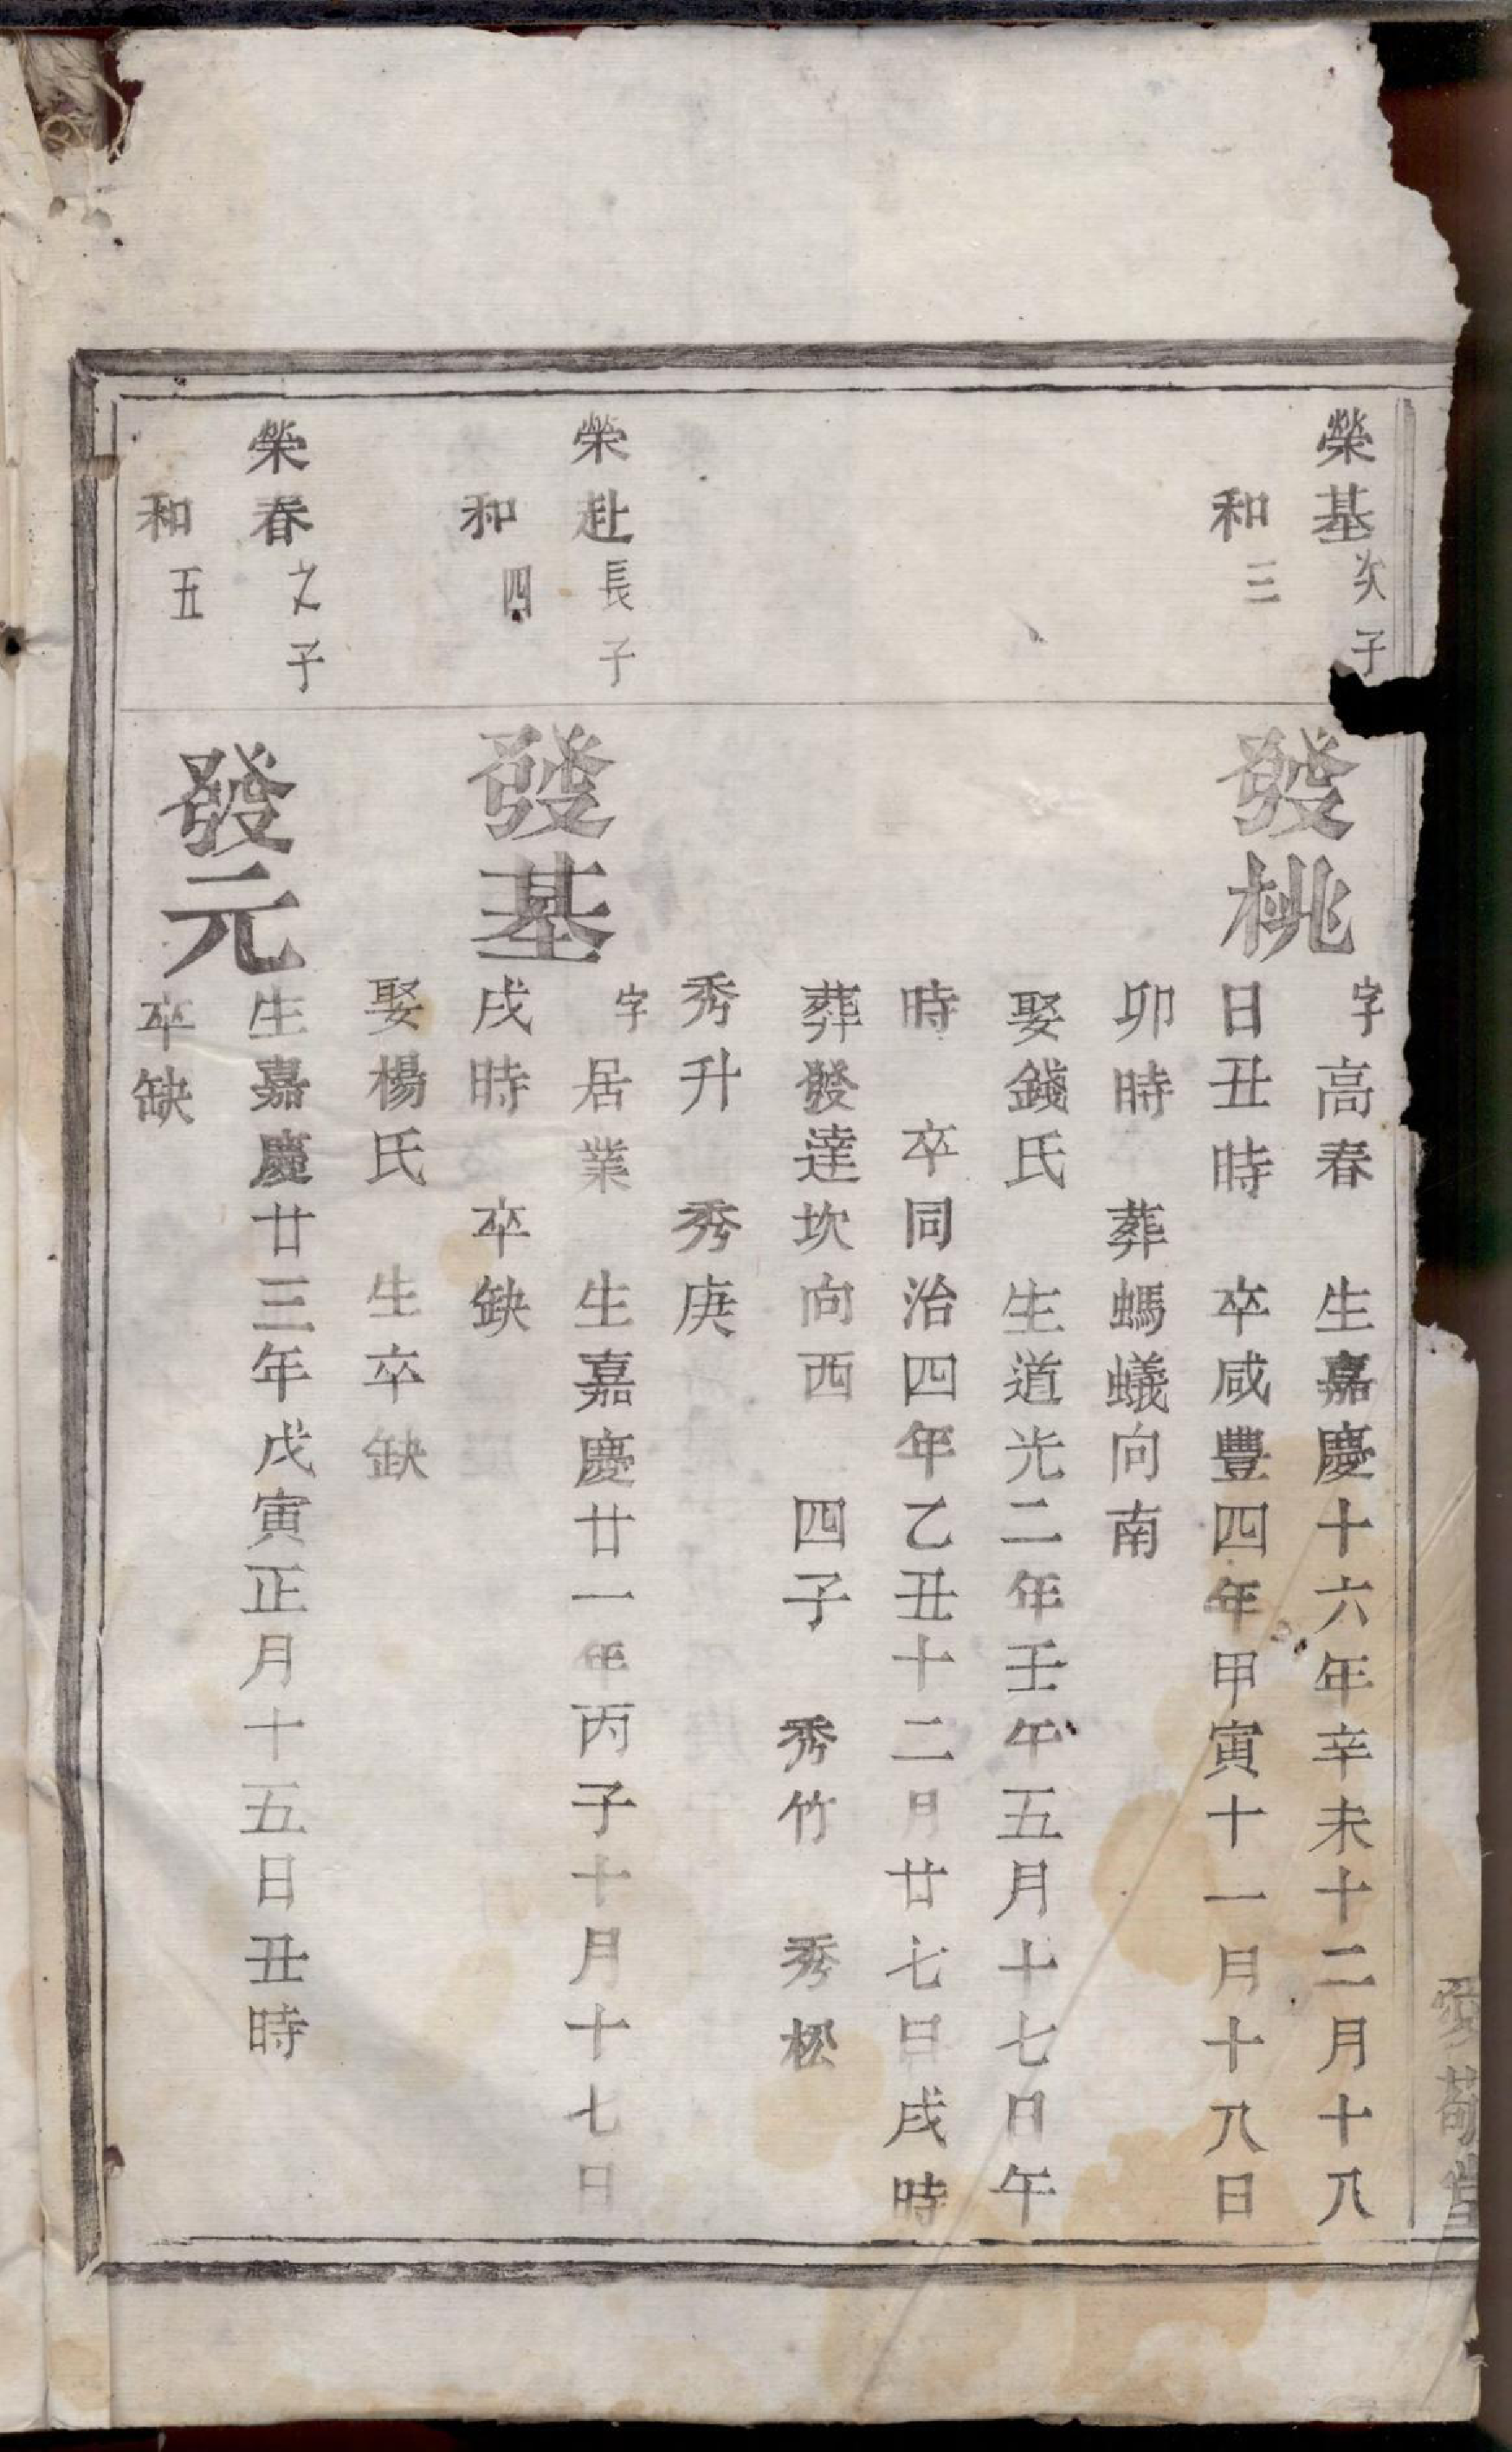 榮基次子
和三
發桃
字高春　生嘉慶十六年辛未十二月十八
日丑時　卒咸豐四年甲寅十一月十八日
卯時　葬螞蟻向南
娶錢氏　生道光二年壬午五月十七日午
時　卒同治四年乙丑十二月廿七日戌時
葬發達坎向西　四子　秀竹　秀松
秀升　秀庚
榮赴長子
和四
發基
字居業　生嘉慶廿一年丙子十月十七日
戌時　卒缺
娶楊氏　生卒缺
榮春之子
和五
發元
生嘉慶廿三年戊寅正月十五日丑時
卒缺